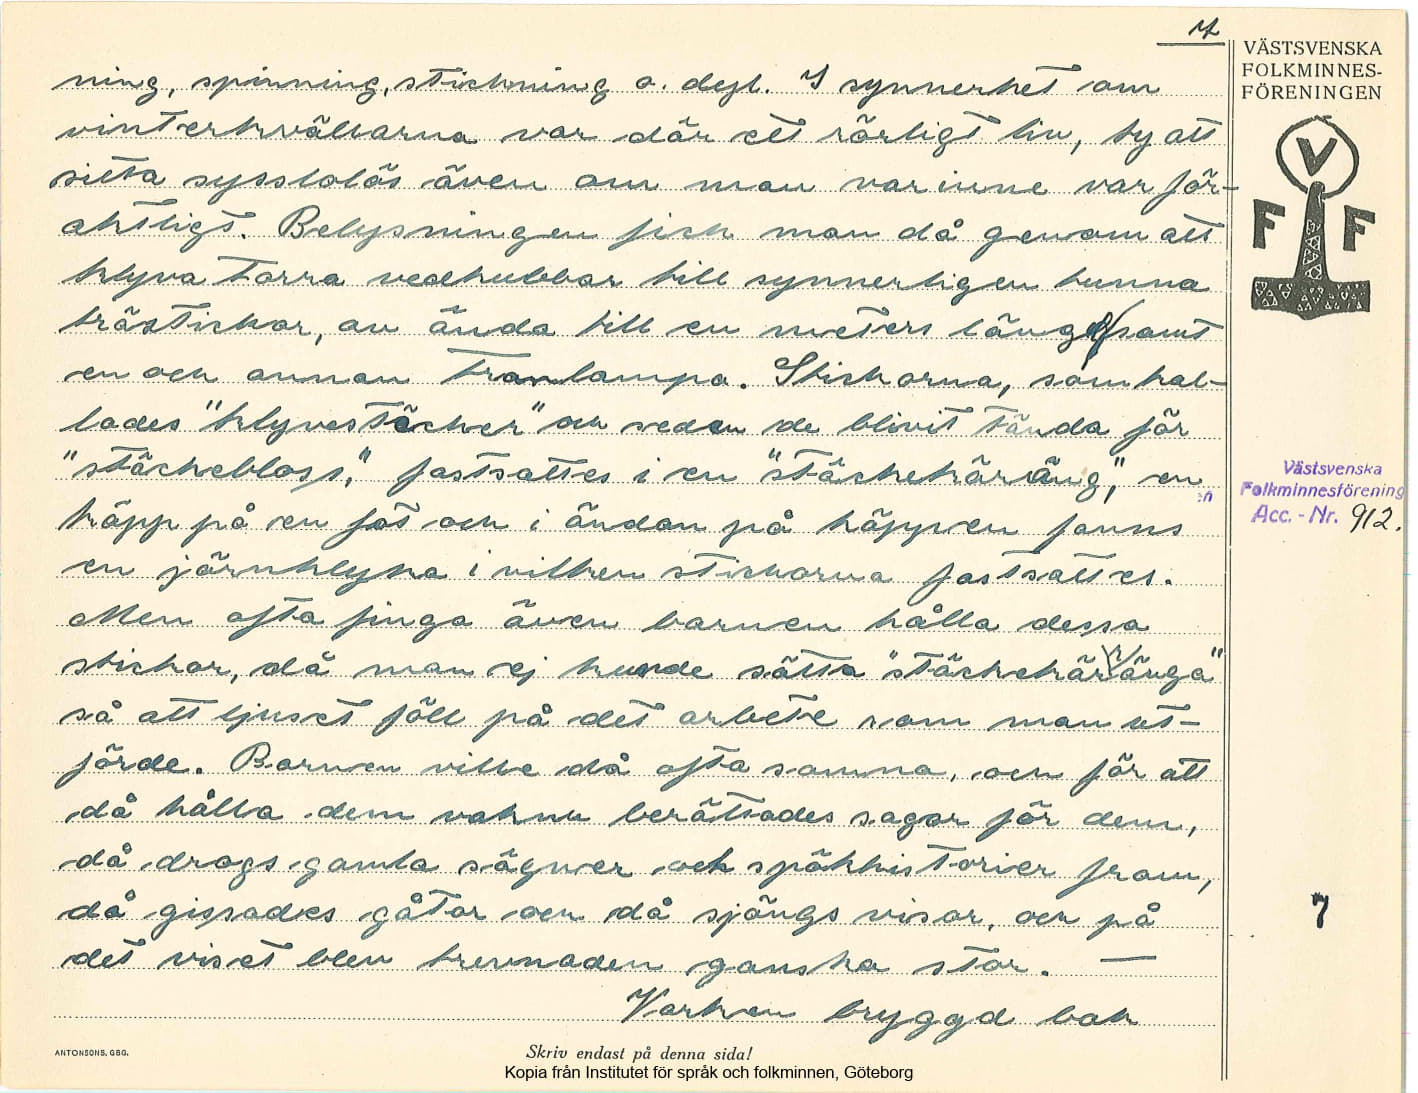 7
VÄSTSVENSKA
FOLKMINNES-
FÖRENINGEN
V
F F
ning, spinning, stickning o. degl. I synnerhet om
vinterkvällarna var där ett rörligt liv, ty att
sitta sysslolös även om man var inne var för-
aktligt. Belysningen fick man då genom att
klyva torra vedkubbar till synnerligen tunna
trästickor, av ända till en meters längd samt
en och annan tranlampa. Stickorna, som kal-
lades "klyvestäcker" och sedan de blivit tända för
"stäckebloss", fastsattes i en "stäckekäräng", en
käpp på en fot och i ändan på käppen fanns
en järnklyka i vilken stickorna fastsattes.
Men ofta finga även barnen hålla dessa
stickor, då man ej kunde sätta "stäckekäränga"
så att ljuset föll på det arbete som man ut-
förde. Barnen ville då ofta somna, och för att
då hålla dem vakna berättades sagor för dem,
då drogs gamla sägner och spökhistorier fram,
då gissades gåtor och då sjöngs visor, och på
det viset blev trevnaden ganska stor. —
Varken bryggd bak
Västsvenska
Folkminnesförening
en
Acc. - Nr. 912.
7
ANTONSONS, GBG.
Skriv endast på denna sida!
Kopia från Institutet för språk och folkminnen, Göteborg